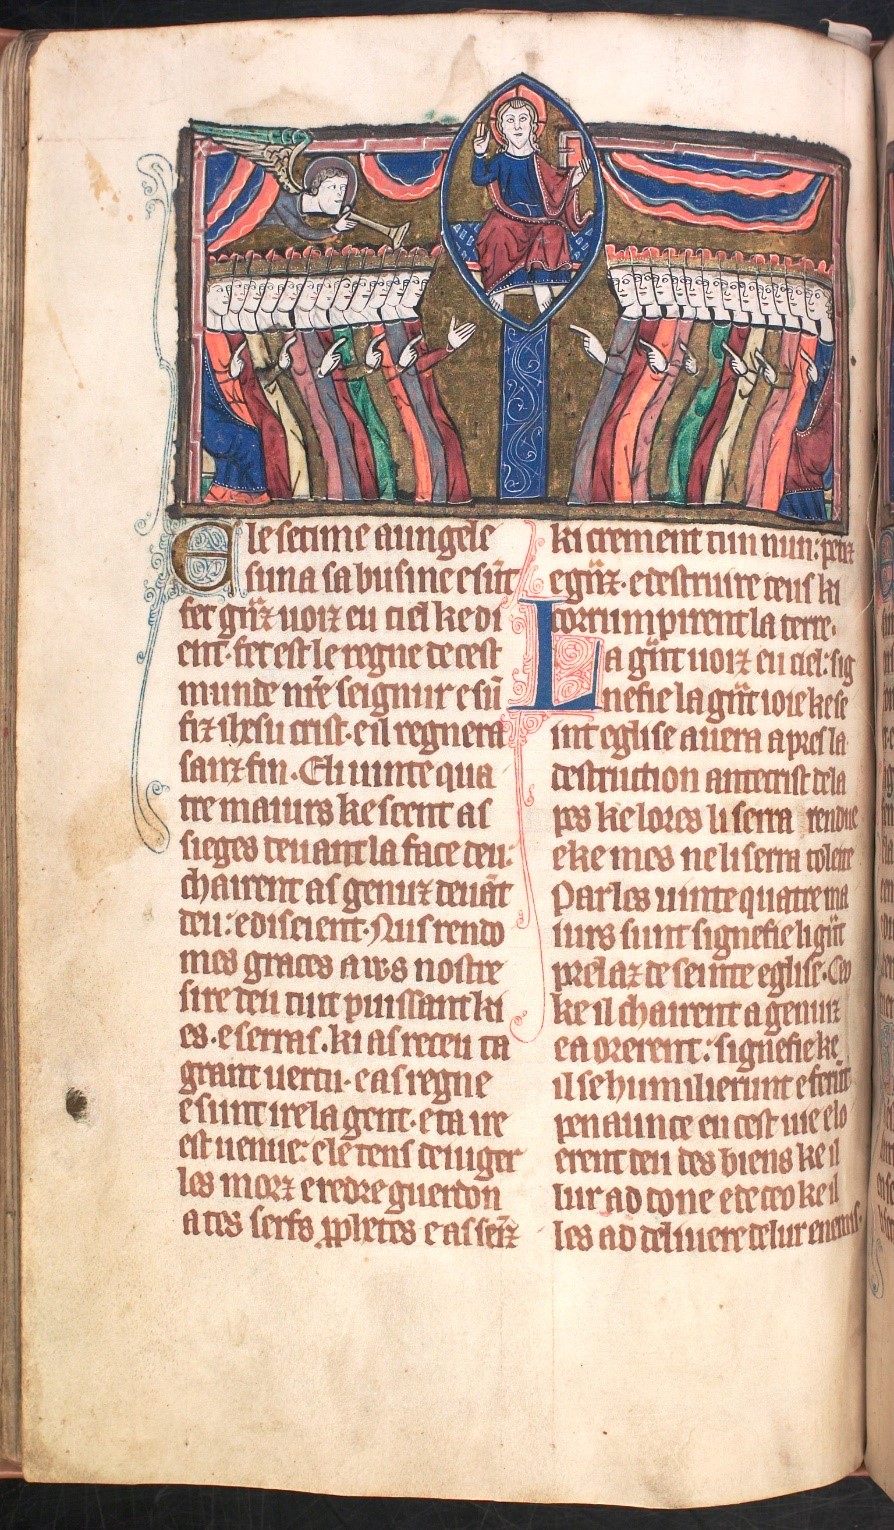 E le setime aungele
suna sa busine e sūt
fet gn̄z uoiz eu ciel ke di
ent· fet est le regne de cest
munde nr̄e seignur e sū
fiz ihesu crist· e il regnera
sanz fin· E li uinte qua
tre maiurs ke seent as
sieges deuant la face deu:
chairent as genuz deuāt
deu: e diseient· Nus rendo
mes graces a uus nostre
sire deu tut puissant ki
es· e serras· ki as receu ta
grant uertu· e as regne
e sunt ire la gent· e ta ire
est uenue: e le tens de iuger
les morz e redre guerdon
a tes serfs ꝓphetes e as seīz
ki crement tun nun: petiz
e gn̄z· e destruire ceus ki
corrumpirent la terre·
La gn̄t uoiz eu ciel: sig
nefie la gn̄t ioie ke se
int eglise auera apres la
destruction antecrist de la
pes ke lores li serra rendue
e ke mes ne li serra toleite
Par les uinte quatre ma
iurs sunt signefie li gn̄t
prelaz de seinte eglise· Ceo
ke il chairent a genuz
e aorerent: signefie ke
il se humilierunt e ferūt
penaunce en cest uie e lo
erent deu des biens ke il
lur ad done e de ceo ke il
les ad deliuere de lur enemis·